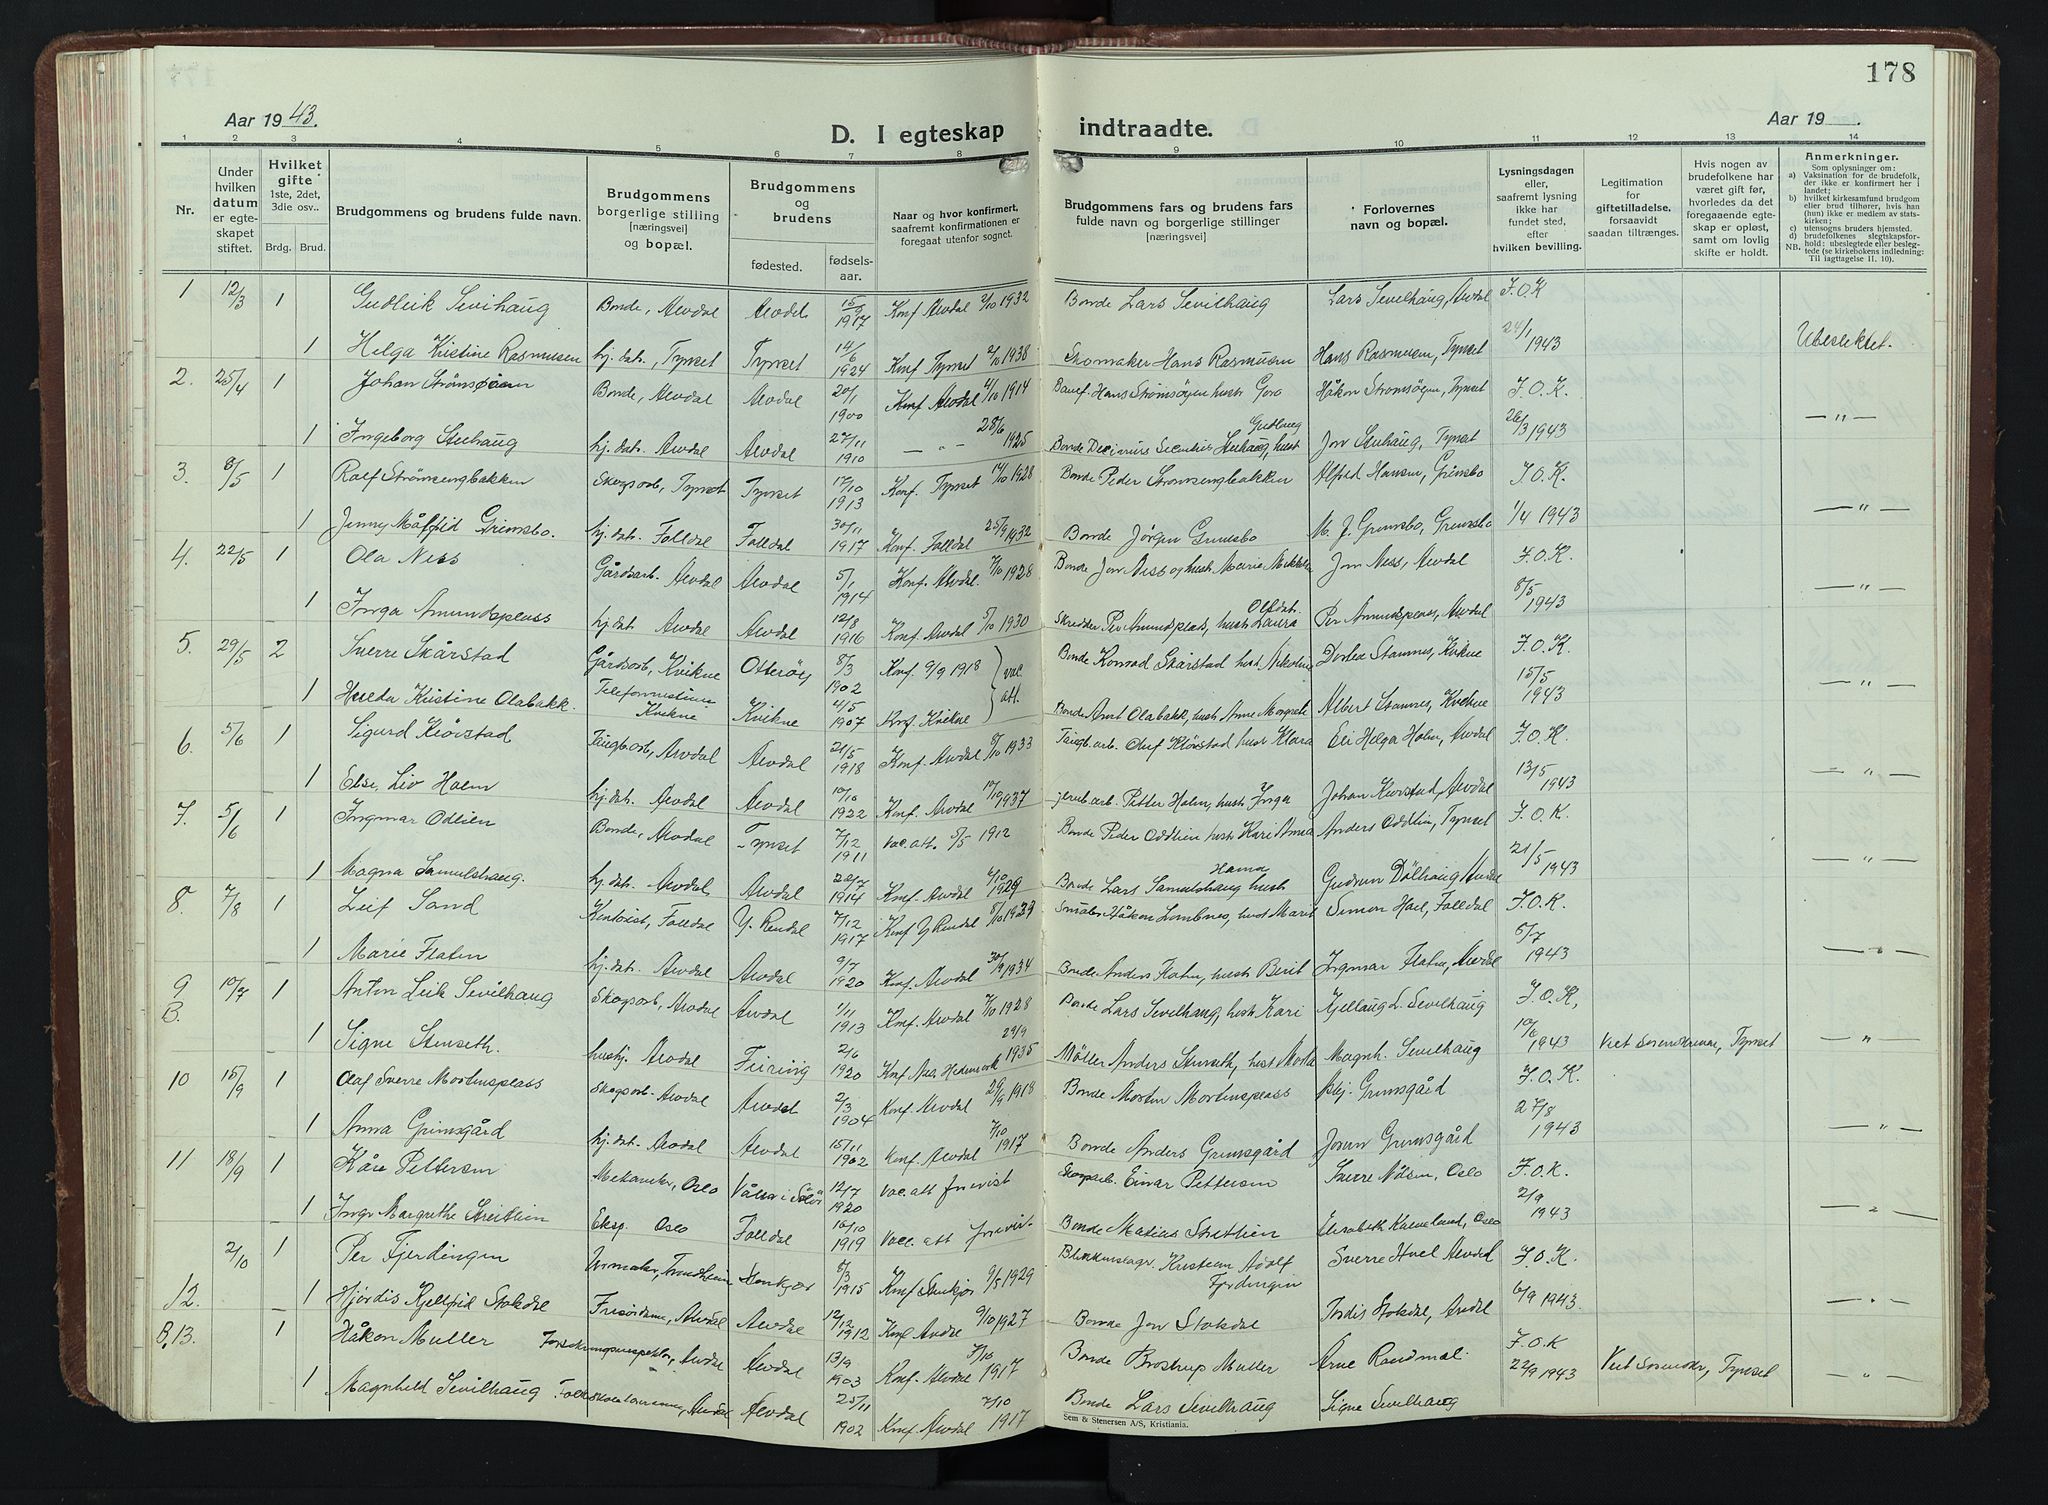 178
Aar 1943.
D. I egteskap indtraadte.
Aar 19
1 2 3 4 5 6 7 8 9 10 11 12 13 14
Nr.
Under hvilken datum er egteskapet stiftet.
Hvilket gifte 1ste, 2det, 3die osv..
Brdg. Brud.
Brudgommens og brudens fulde navn.
Brudgommens borgerlige stilling [næringsvei] og bopæl.
Brudgommens og brudens
fødested.
fødselsaar.
Naar og hvor konfirmert, saafremt konfirmationen er foregaat utenfor sognet.
Brudgommens fars og brudens fars fulde navn og borgerlige stillinger [næringsvei]
Forlovernes navn og bopæl.
Lysningsdagen eller, saafremt lysning ikke har fundet sted, efter hvilken bevilling.
Legitimation for giftetilladelse, forsaavidt saadan tiltrænges.
Hvis nogen av brudefolkene har været gift før, hvorledes da det foregaaende egteskap er opløst, samt om lovlig skifte er holdt.
Anmerkninger.
Som oplysninger om:
a) Vaksination for de brudefolk, der ikke er konfirmert her i landet;
b) hvilket kirkesamfund brudgom eller brud tilhører, hvis han (hun) ikke er medlem av statskirken;
c) utensogns bruders hjemsted.
d) brudefolkenes slegtskapsforhold: ubeslegtede eller beslegtede (se kirkebokens indledning: Til iagttagelse II. 10).
NB.
1 12/3 1 Gudleik Sevilhaug Bonde, Alvdal Alvdal 15/9 1917 Konf Alvdal 2/10 1932 Bonde Lars Sevilhaug Lars Sevilhaug, Alvdal F.O.K
1 Helga Kristine Rasmusen hj. dat., Tynset Tynset 14/6 1924 Konf Tynset 2/10 1938 Skomaker Hans Rasmusen Hans Rasmusen, Tynset 24/1 1943 Ubeslektet.
2. 25/4 1 Johan Strömsöien Bonde, Alvdal Alvdal 20/1 1900 Konf Alvdal 4/10 1914 Hans Strömsöyen hust Goro Håkon Strömsöyen, Tynset F.O.K.
1 Ingeborg Steihaug hj. dat. Alvdal Alvdal 27/11 1910 — " 28/6 1925 Bonde Steihaug, hust Gudlaug Jon Steihaug, Tynset 26/3 1943 — " —
3. 8/5 1 Rolf Strömsengbakken Skogsarb, Tynset Tynset 17/10 1913 Konf. Tynset 14/10 1928 Bonde Peder Strömsengbakken Alfred Hansen, Grimsbo F.O.K.
1 Jenny Målfrid Grimsbo. hj. dat. Folldal Folldal 30/11 1917 Konf Folldal 25/9 1932 Bonde Jörgen Grimsbo M. J. Grimsbo, Grimsbo 1/4 1943 — " —
4. 22/5 1 Ola Ness Gårdsarb. Alvdal Alvdal 5/1 1914 Konf. Alvdal 7/10 1928 Bonde Jon Ness og hust Marie Mikkelsen Jon Ness, Alvdal F.O.K.
1 Inga Amundsplass hj. dat Alvdal Alvdal 12/8 1916 Konf Alvdal 5/10 1930 Skredder Per Amundsplass, hust Laura Olsdat. Per Amundsplass, Alvdal 8/5 1943 — " —
5. 29/5 2 Sverre Skårstad Gårdsarb, Kvikne Otteröy 8/3 1902 Konf 9/9 1918 Bonde Konrad Skårstad hust Nikoline Dorlea Stamnes, Kvikne F.O.K.
1 Hulda Kristine Olabakk. Telefonistinne Kvikne Kvikne 4/5 1907 Konf Kvikne vac. att. Bonde Arnt Olabakk, hust Anne Margrete Albert Stamnes, Kvikne 15/5 1943 — " —
6. 5/6 1 Sigurd Klörstad Taugb.arb, Alvdal Alvdal 21/5 1918 Konf. Alvdal 8/10 1933 Taugb.arb. Oluf Klörstad hust Klara Eli Helga Holm, Alvdal F.O.K.
1 Else Liv Holm hj. dat. Alvdal Alvdal 10/10 1922 Konf. Alvdal 10/10 1937 jernb.arb. Petter Holm, hust Inga Johan Klörstad, Alvdal 13/5 1943 — " —
7. 5/6 1 Ingmar Odlien Bonde, Alvdal Tynset 7/12 1911 vac. att. 5/5 1912 Bonde Peder Oddlien hust Kari Anna Anders Oddlien, Tynset F.O.K.
1 Magna Samulshaug. hj. dat. Alvdal Alvdal 22/7 1914 Konf. Alvdal 6/10 1929 Bonde Lars Samulshaug hust Hanna Gudrun Dölhaug Alvdal 21/5 1943 — " —
8. 7/8 1 Leif Sand Kontorist, Folldal Y. Rendal 7/12 1917 Konf Y Rendal Håkon Lombnes, hust Marit Simon Hoel, Folldal F.O.K.
1 Marie Flaten hj. dat. Alvdal Alvdal 9/7 1920 Konf. Alvdal 30/9 1934 Bonde Anders Flaten, hust Berit Ingmar Flaten, Alvdal 5/7 1943 — " —
9 B. 1 Anton Leik Sevilhaug Skogsarb, Alvdal Alvdal 1/11 1913 Konf. Alvdal 7/10 1928 Bonde Lars Sevilhaug, hust Kari Kjellaug L. Sevilhaug F.O.K.
1 Signe Stenseth. hushj. Alvdal Feiring 2/6 1920 Konf Nes Hedemark 29/9 1935 Möller Anders Stenseth, hust Magnh. Sevilhaug 10/6 1943 Viet Sorenskriver, Tynset — " —
10 15/9 1 Olaf Sverre Mortensplass Skogsarb. Alvdal Alvdal 2/3 1904 Konf. Alvdal 29/9 1918 Bonde Morten Mortensplass Grimsgård F.O.K.
1 Anna Grimsgård hj. dat. Alvdal Alvdal 15/11 1902 Konf. Alvdal 7/10 1917 Bonde Anders Grimsgård Grimsgård 27/8 1943 — " —
11 18/9 1 Kåre Pettersen Mekaniker, Oslo Våler i Solör 12/7 1920 vac. att fremvist Skogsarb. Einar Pettersen Sverre Nösen, Oslo F.O.K.
1 Inger Margrethe Streitlien Eksp. Oslo Folldal 16/10 1919 Vacc. att fremvist Bonde Matias Streitlien Elisabeth Kleveland, Oslo 2/9 1943 — " —
12. 2/10 1 Per Fjerdingen Urmaker, Trondheim Stenkjær 8/3 1915 Konf Stenkjær 9/5 1929 Blikkenslager Kristian Adolf Fjerdingen Sverre Hoel Alvdal F.O.K.
1 Hjördis Kjellfrid Stokdal Frisördame, Alvdal Alvdal 12/12 1912 Konf Alvdal 9/10 1927 Bonde Jon Stokdal Jordis Stokdal, Alvdal 6/9 1943. — " —
B. 13. 1 Håkon Muller Forsikringsinspektör, Alvdal Alvdal 13/9 1903 Konf. Alvdal 7/10 1917 Bonde Brostrup Muller Arne Randmæl F.O.K
1 Magnhild Sevilhaug Folkeskolelærerinne, Alvdal Alvdal 25/11 1902 Konf Alvdal 7/10 1917 Bonde Lars Sevilhaug Signe Sevilhaug 22/9 1943 Viet Sorenskr, Tynset — " —
Sem & Stenersen A/S, Kristiania.